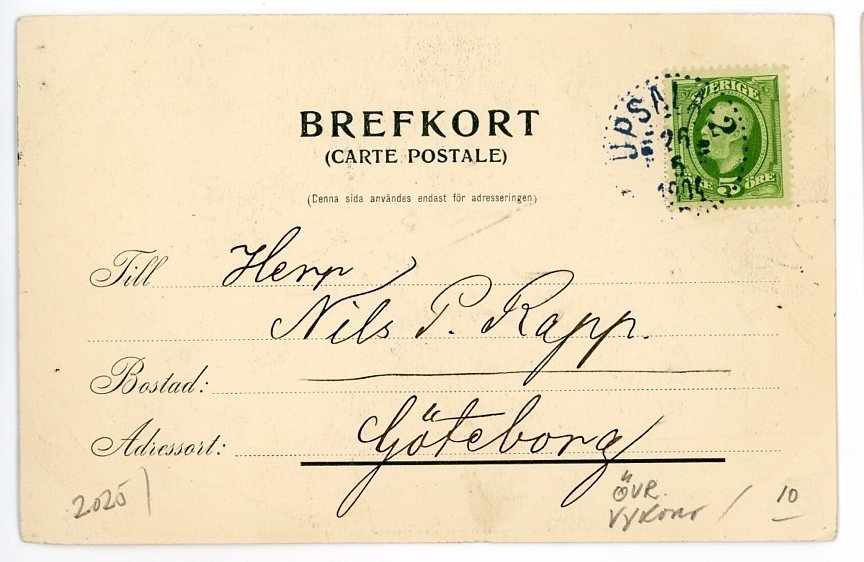 BREFKORT
(CARTE POSTALE)
(Denna sida användes endast för adresseringen)
UPSALA
26
5
SVERIGE
5
ÖRE
Till Herr
Nils P. Rapp.
Bostad:
Adressort: Göteborg
2025
ÖVR.
VYKORT / 10